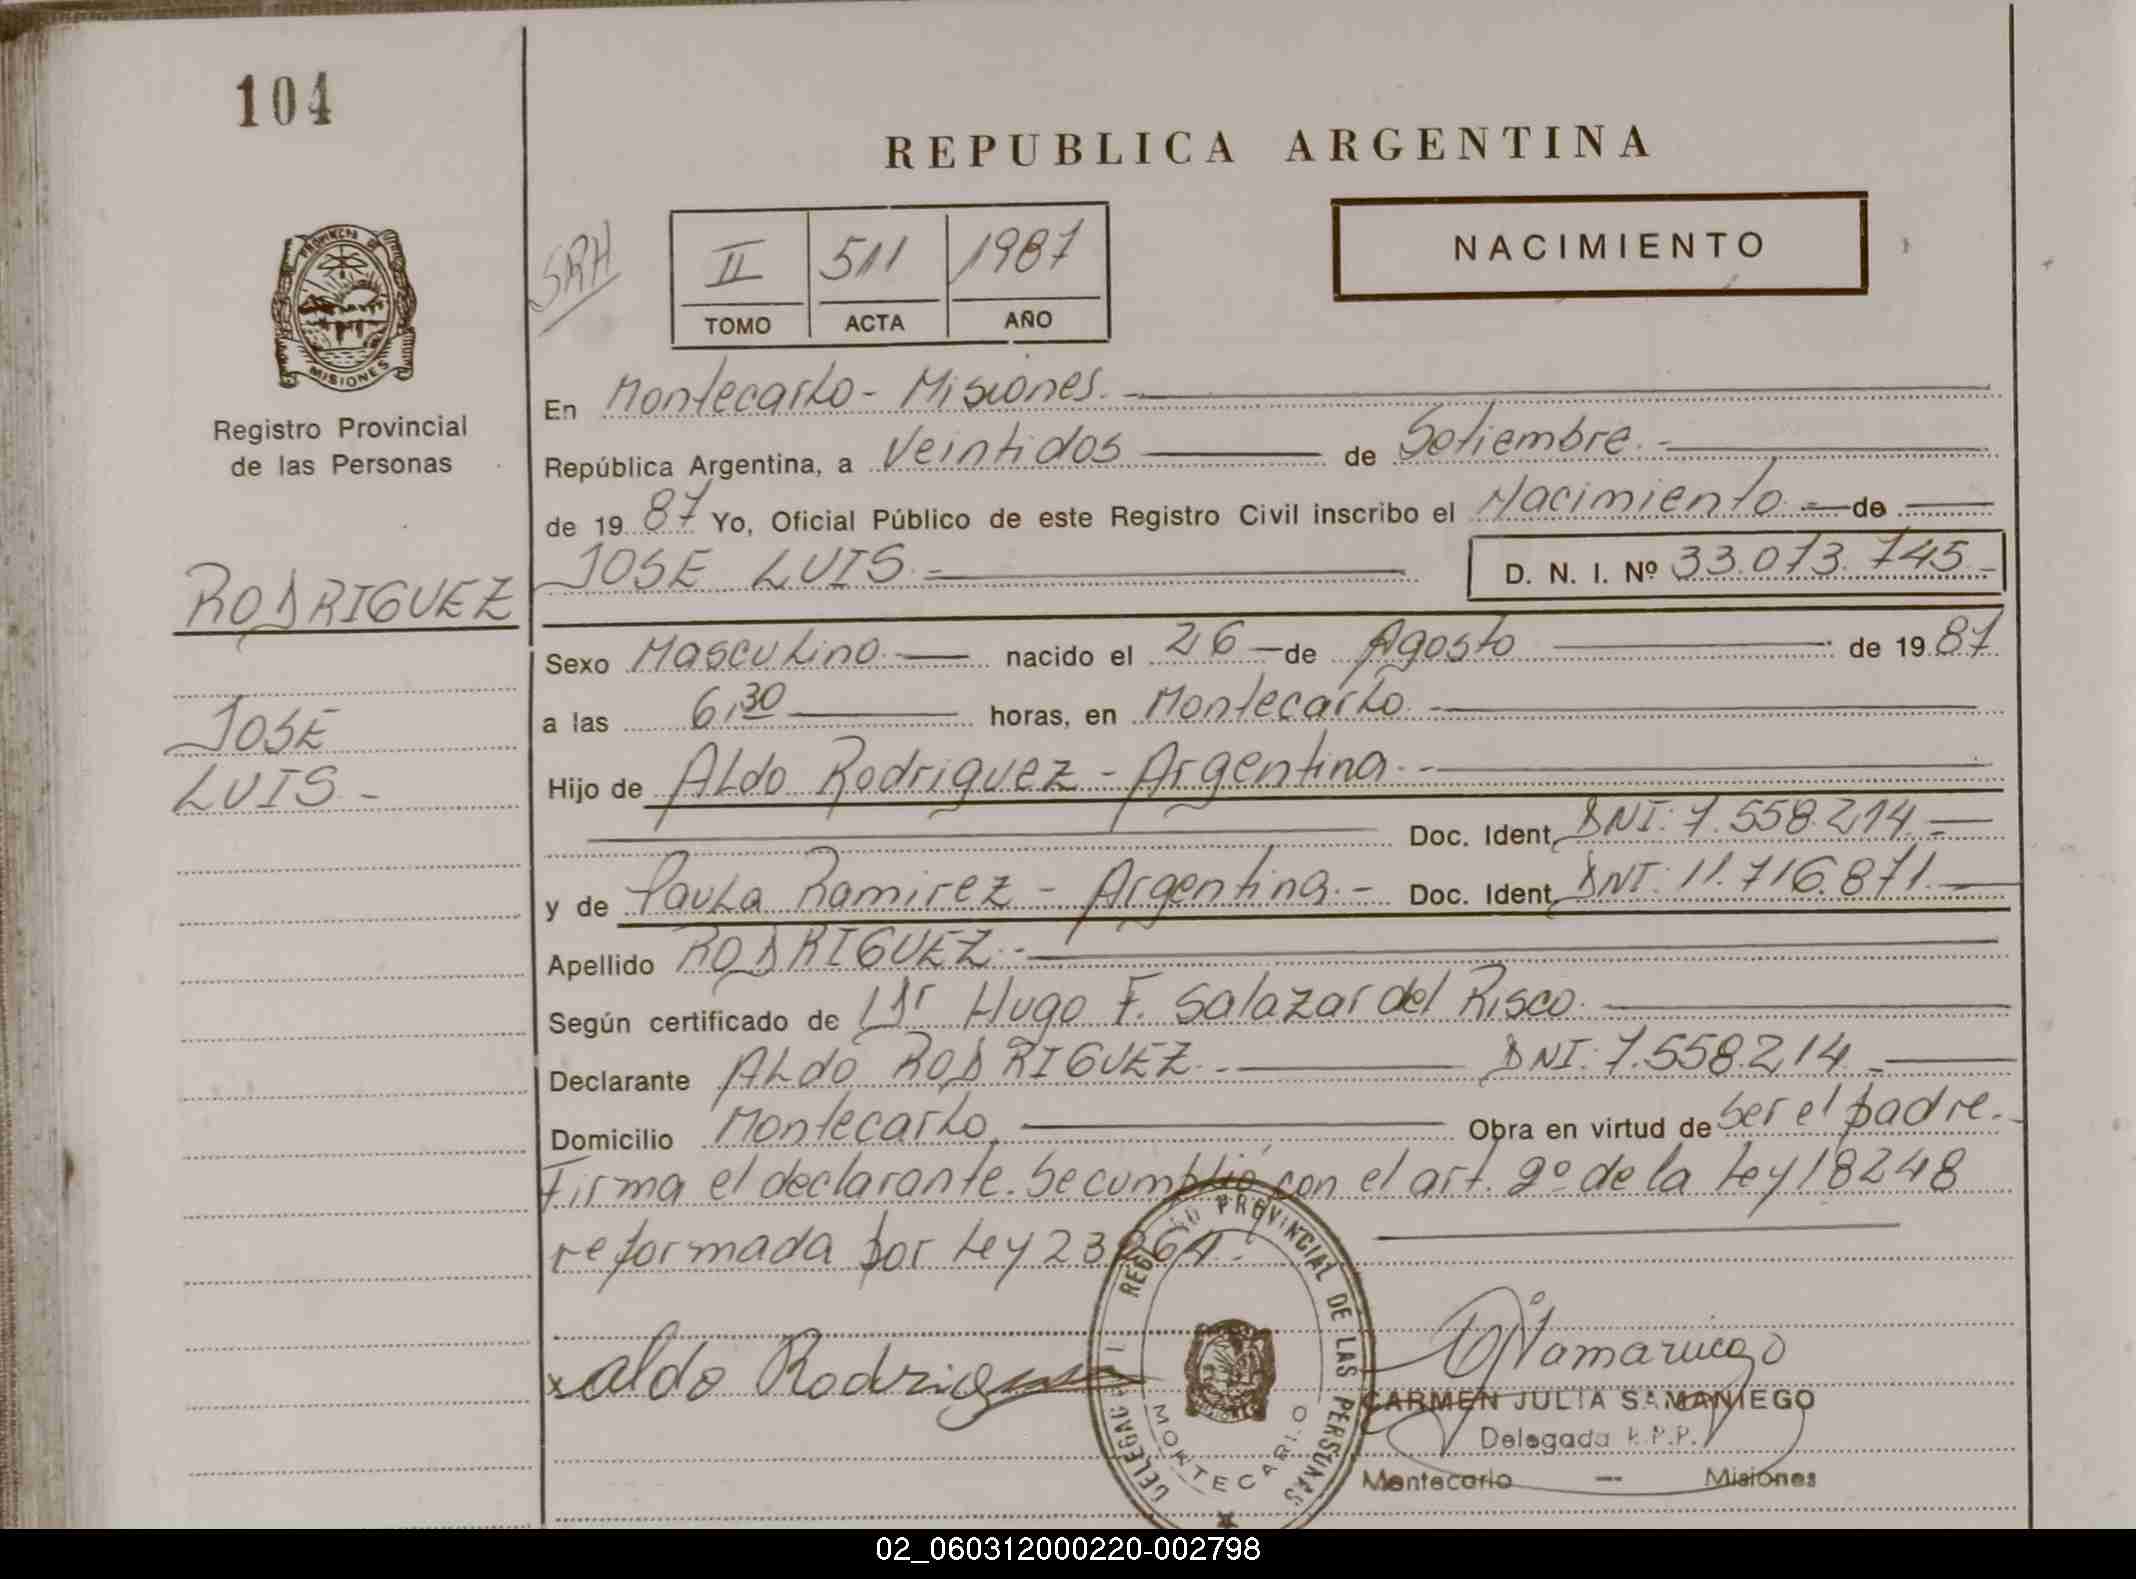 104
REPUBLICA ARGENTINA
PROVINCIA DE
MISIONES
SRH
II 511 1987
TOMO ACTA AÑO
NACIMIENTO
Registro Provincial
de las Personas
En Montecarlo - Misiones.
República Argentina, a Veintidos de Setiembre.
de 1987 Yo, Oficial Público de este Registro Civil inscribo el Nacimiento de
JOSE LUIS. D. N. I. Nº 33.073.745
RODRIGUEZ
JOSE
LUIS -
Sexo Masculino nacido el 26 de Agosto de 1987
a las 6,30 horas, en Montecarlo
Hijo de Aldo Rodriguez - Argentina
Doc. Ident. DNI: 7.558.214
y de Paula Ramirez - Argentina.- Doc. Ident. DNI: 11.716.871
Apellido RODRIGUEZ
Según certificado de Dr Hugo F. Salazar del Risco
Declarante Aldo RODRIGUEZ DNI: 7.558.214
Domicilio Montecarlo. Obra en virtud de ser el padre.
Firma el declarante. Se cumplió con el art. 2º de la Ley 18248
reformada por Ley 23264.
x aldo Rodriguez
REGISTRO PROVINCIAL DE LAS PERSONAS
DELEGAC
MONTECARLO
CARMEN JULIA SAMANIEGO
Delegada R.P.P.
Montecarlo — Misiones
02_060312000220-002798